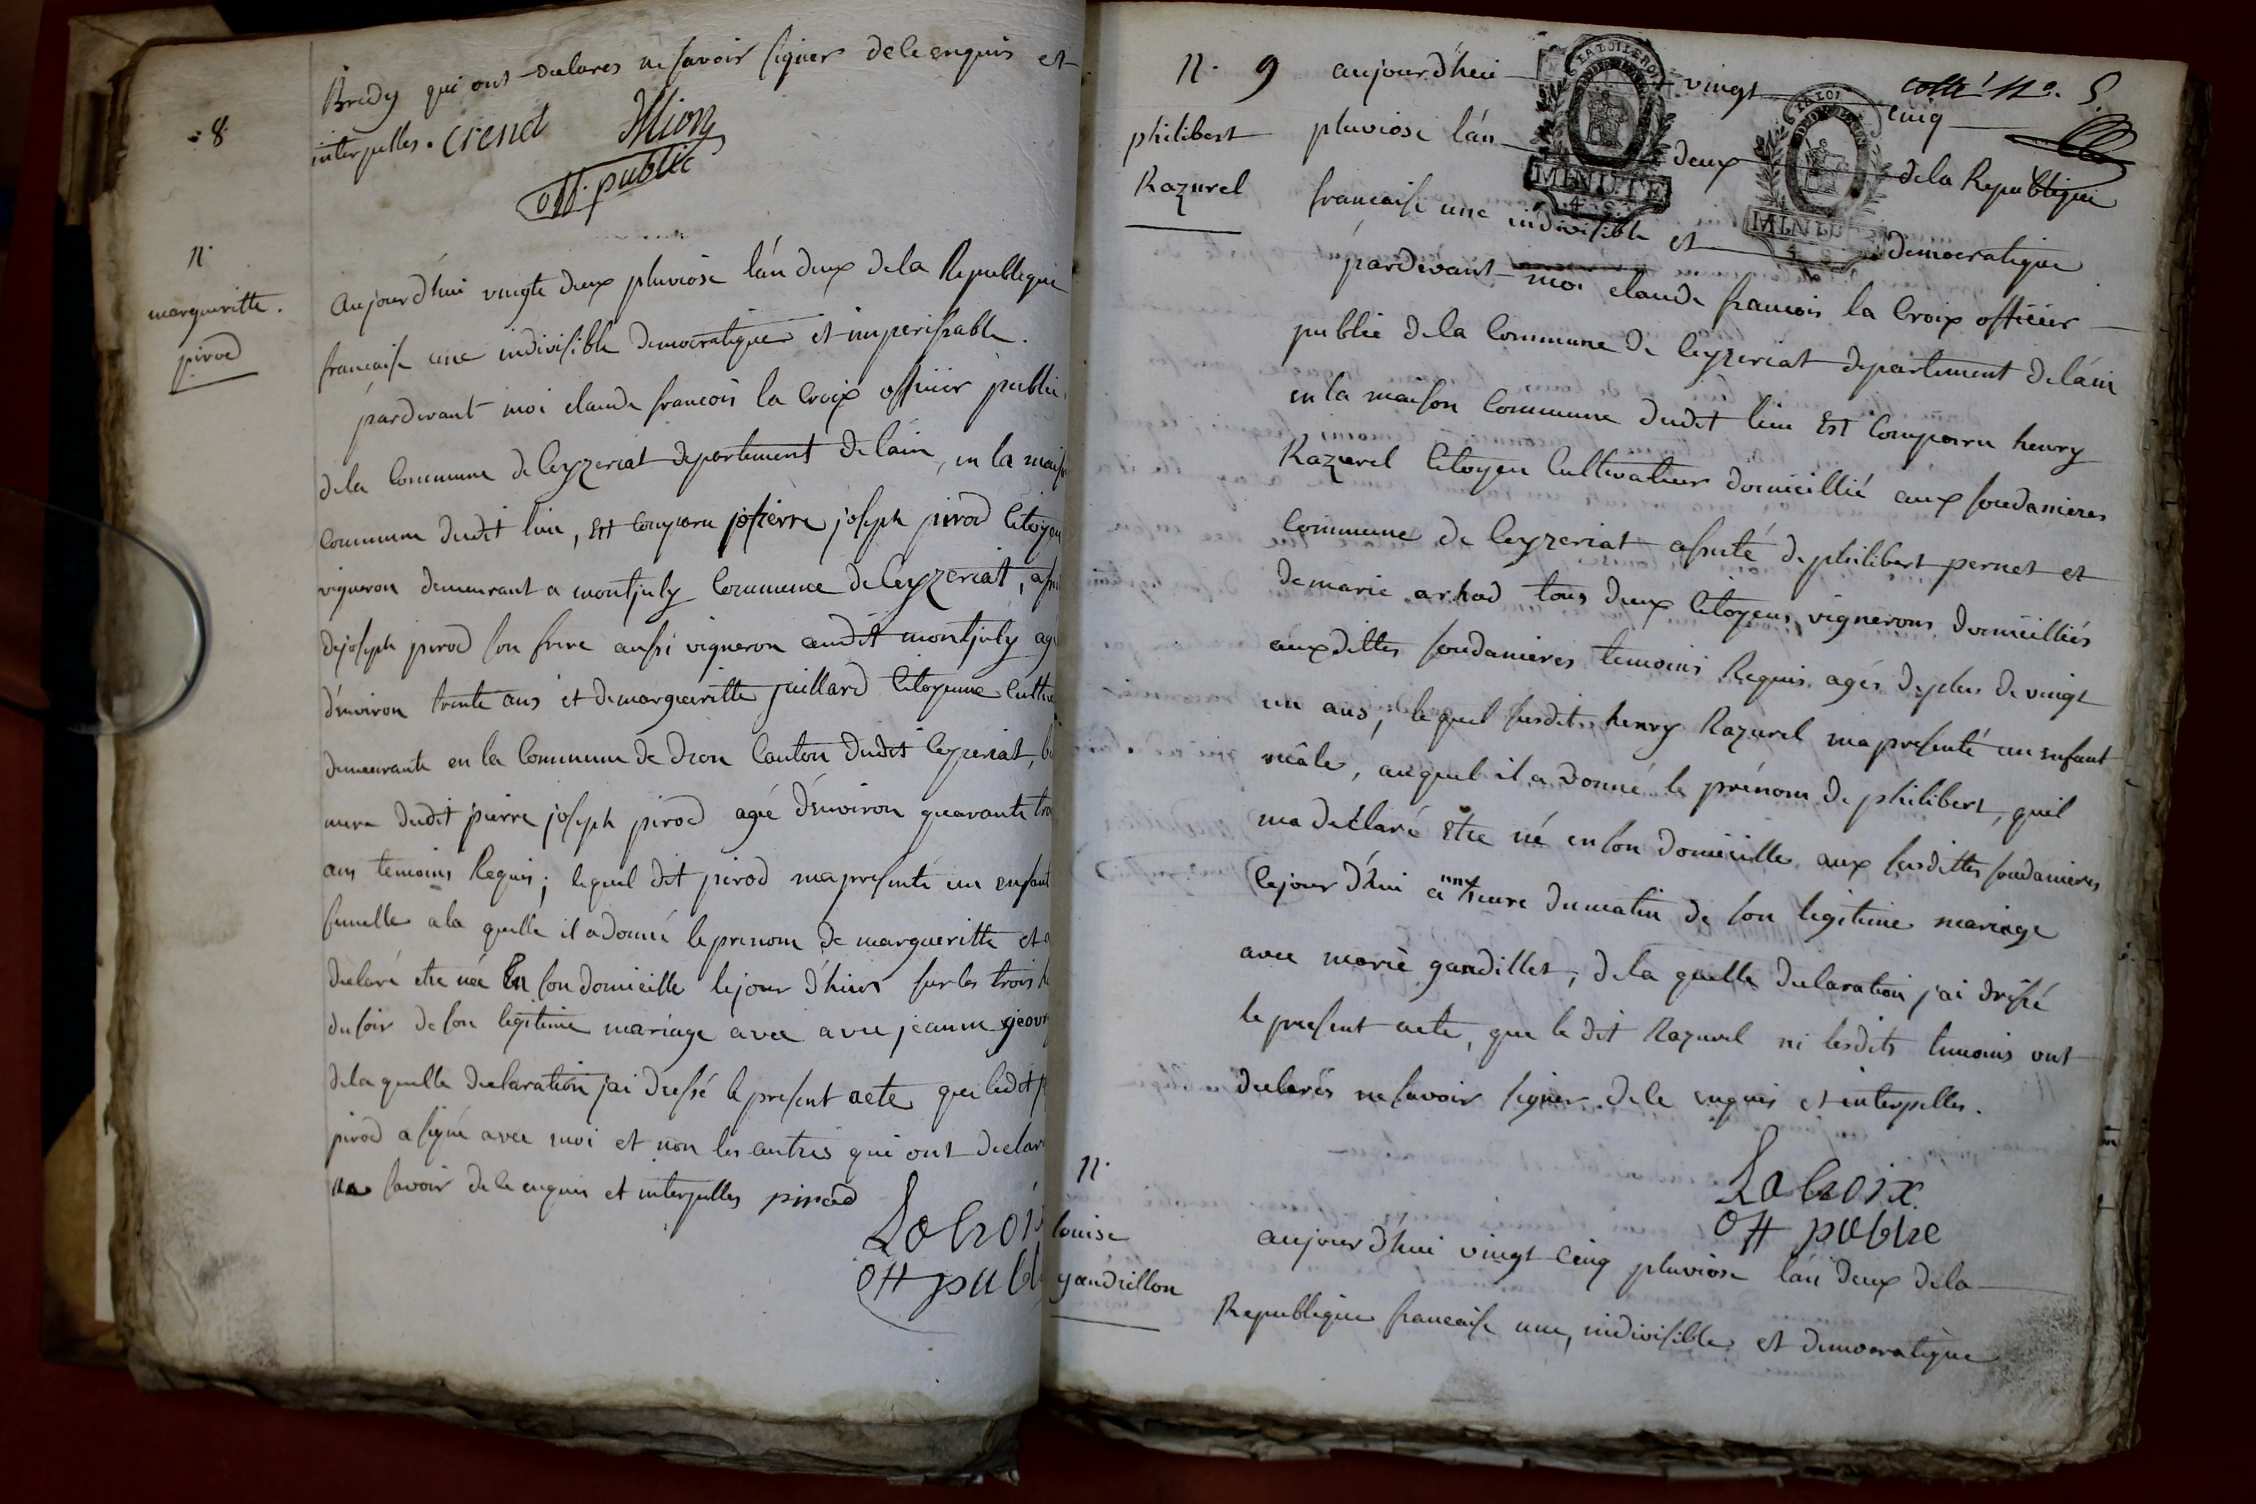 Bredy qui ont declarés ne savoir signer de ce enquis et
interpellés. crend Mion
off. public
8
n.
margueritte.
pirod
aujourd'hui vingte deux pluviose l'an deux de la Republique
francaise une indivisible democratique et imperissable.
pardevant moi claude francois la Croix officier public
de la Commune de Ceyzeriat departement de l'ain, en la maison
Commune dudit lieu, Est Comparu pierre joseph pirod Citoyen
vigneron demeurant a montjuly Commune de Ceyzeriat,
de joseph pirod son frere aussi vigneron audit montjuly agé
d'environ trente ans et de margueritte juillard Citoyenne
demeurante en la Commune de Dron Canton dudit Ceyzeriat,
mere dudit pierre joseph pirod agée d'environ quarante
ans temoins Requis; lequel dit pirod ma presenté un enfant
femelle a la quelle il a donné le prenom de margueritte et
declaré etre née En son domicille le jour d'hier sur les trois
du soir de son legitime mariage avec avec jeanne
de la quelle declaration j'ai dressé le present acte que ledit
pirod a signé avec moi et non les autres qui ont declaré
ne savoir de ce enquis et interpellés pirod
LaCroix
off publ
cotté No. 5.
n. 9
philibert
Razurel
aujourd'hui vingt cinq
pluviose l'an deux de la Republique
francaise une indivisible et democratique
pardevant moi claude francois la Croix officier
public de la Commune de Ceyzeriat departement de l'ain
en la maison Commune dudit lieu Est Comparu henry
Razurel Citoyen Cultivateur domicillié aux soudanieres
Commune de Ceyzeriat assisté de philibert pernet et
de marie arhod tous deux Citoyens vignerons domicilliés
auxdittes soudanieres temoins Requis agés de plus de vingt
un ans, le quel susdit henry Razurel ma presenté un enfant
mâle, auquel il a donné le prénom de philibert, quil
ma declaré Etre né en son domicille aux susdittes soudanieres
Cejour d'hui a une heure du matin de son legitime mariage
avec marie gandillet, de la quelle declaration j'ai dressé
le present acte, que le dit Razurel ni lesdits temoins ont
declarés ne savoir signer de ce enquis et interpellés.
LaCroix
off publie
n.
louise
gandillon
aujourd'hui vingt Cinq pluviose l'an deux de la
Republique francaise une, indivisible et democratique
LA LOI LE ROI
MINUTE
4. S.
LA LOI
MINU
4 S